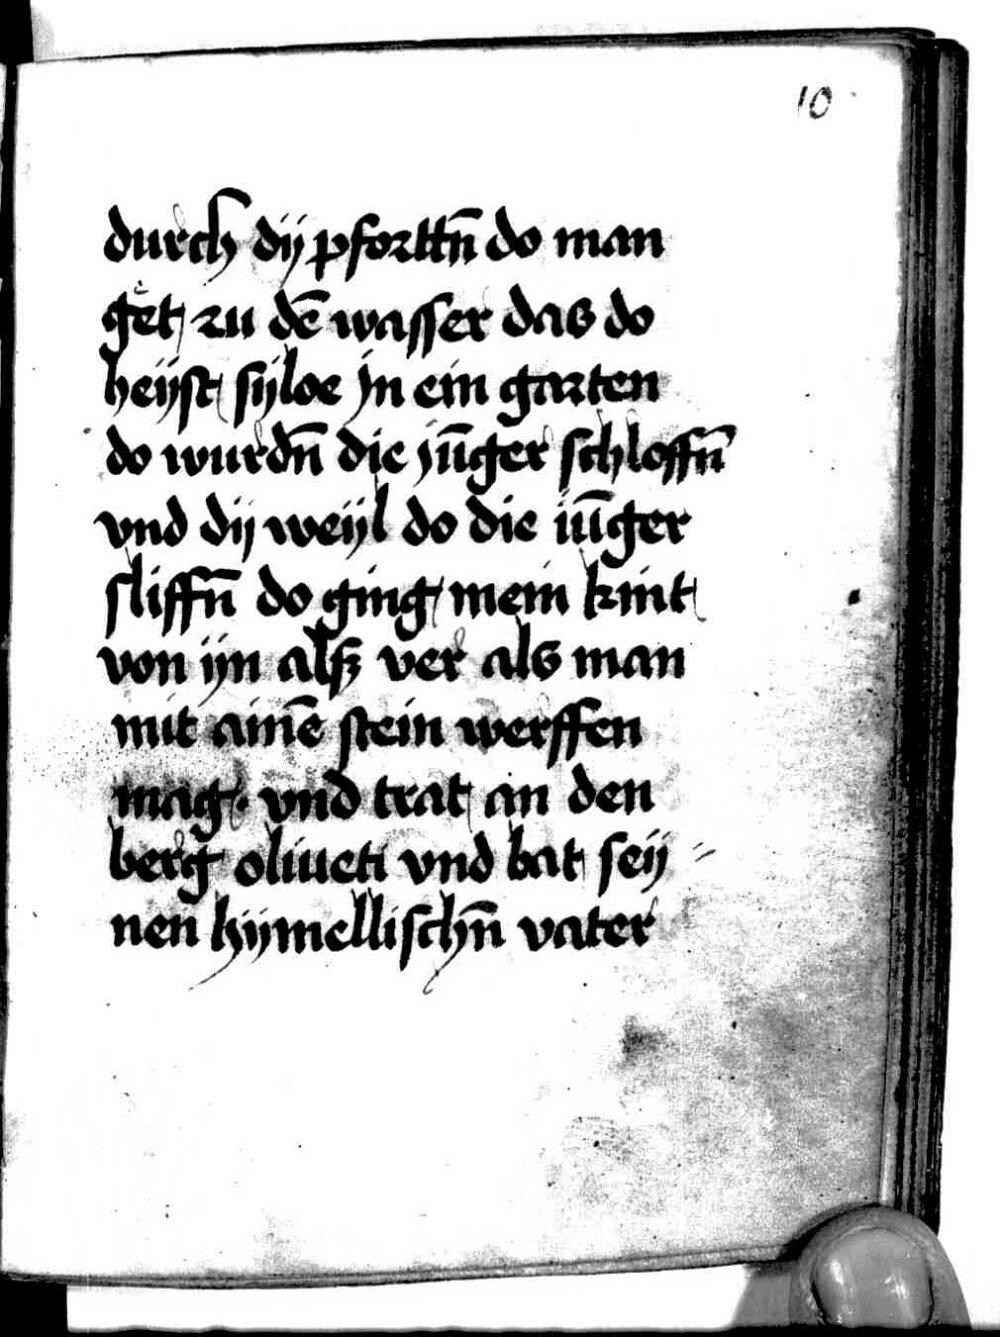 10
durch dij pforttn̄ do man
get zu dē wasser das do
heijst sijloe jn ein garten
do wurdn̄ die jūger schloffn̄
vnd dij weijl do die iūger
sliffn̄ do ging mein kint
von ijn alsz ver als man
mit ainē stein werffen
mag. vnd trat an den
berg oliueti vnd bat seij
nen hijmellischn̄ vater